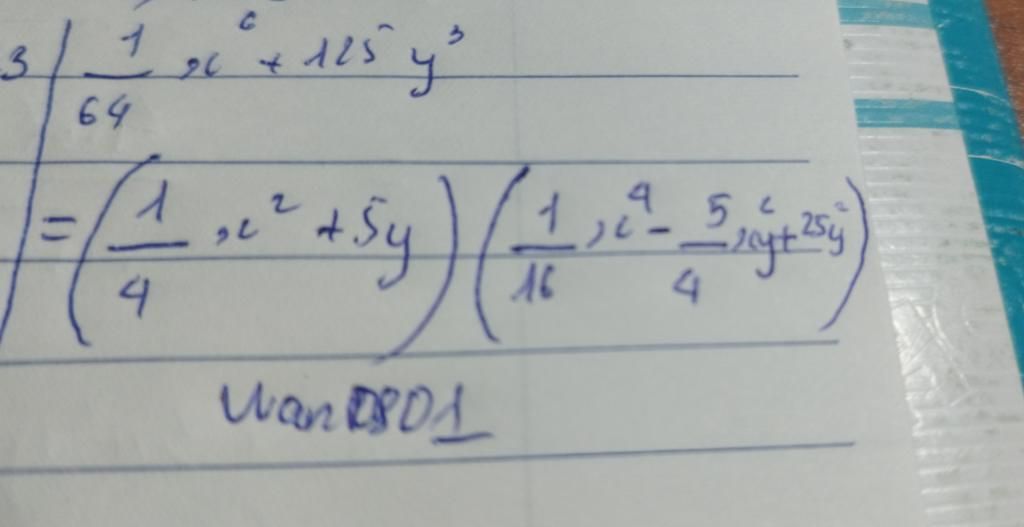 3 1/64 x⁶ + 125 y³
= (1/4 x² + 5y) (1/16 x⁴ - 5/4 x²y + 25y²)